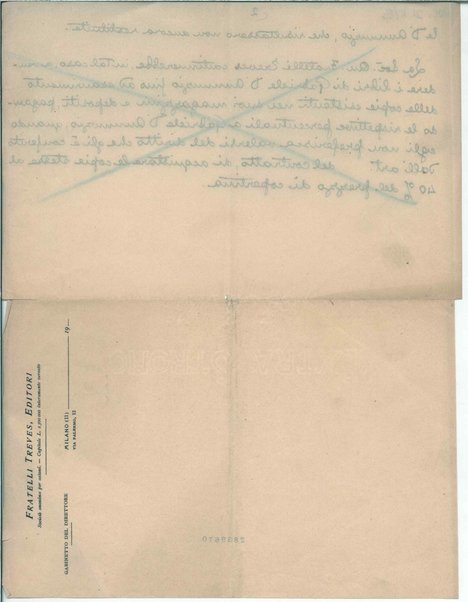 2
le D'Annunzio, che risultassero non ancora restituite.
La Soc. An. Fratelli Treves continuerebbe, in tal caso, a ven-
dere i libri di Gabriele D'Annunzio fino ad esaurimento
delle copie esistenti nei suoi magazzini e depositi, pagan-
do le rispettive percentuali a Gabriele D'Annunzio, quando
egli non preferisca valersi del diritto che gli è conferito
dall'art. del contratto di acquistare le copie stesse al
40% del prezzo di copertina.
FRATELLI TREVES, EDITORI
Società anonima per azioni. — Capitale L. interamente versato
GABINETTO DEL DIRETTORE
MILANO (III)
VIA PALERMO, 12
19